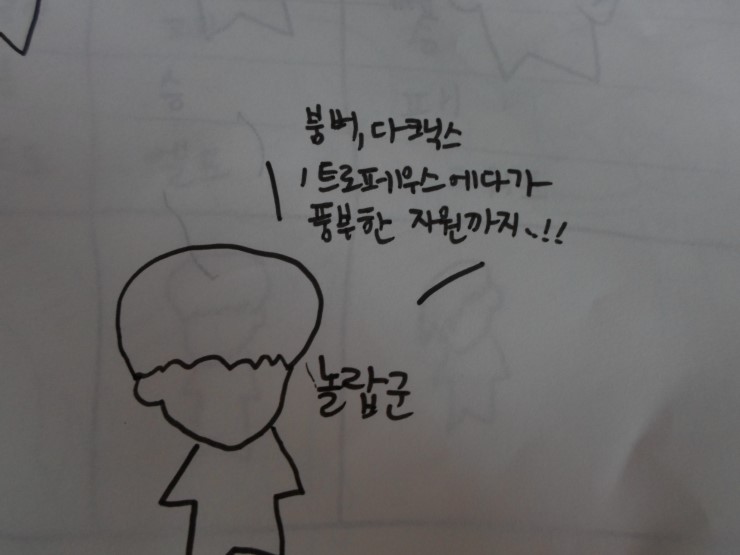 붕버, 다크닉스
, 트로페우스에다가
풍부한 자원까지..!!
놀랍군